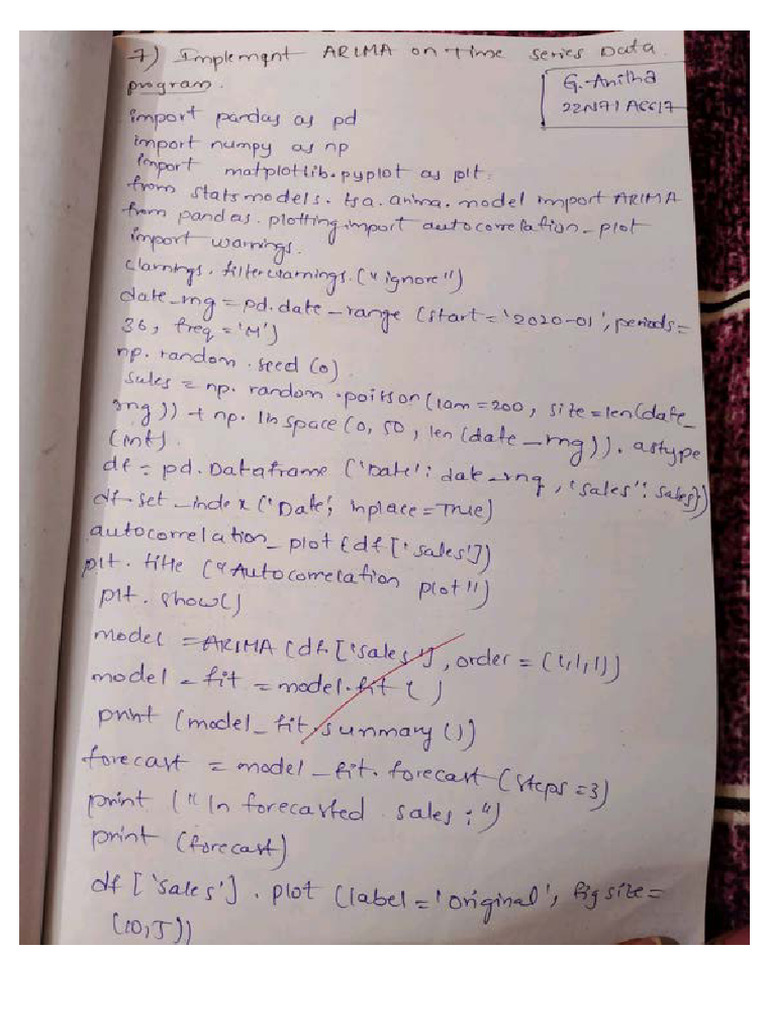 7) Implement ARIMA on Time series Data
program.
G. Anitha
22N71A6617
import pandas as pd
import numpy as np
import matplotlib.pyplot as plt.
from statsmodels. tsa. arima. model import ARIMA
from pandas. plotting.import autocorrelation_plot
import warnings.
warnings. filterwarnings. ("ignore")
date_rng = pd.date_range (start='2020-01', periods=
36, freq = 'M')
np. random .seed (0).
sales = np. random .poisson (lam=200, size=len(date_
rng)) + np. linspace (0, 50, len (date_rng)). astype
(int).
df = pd. Dataframe ('Date': date_rng, 'sales': sales})
df-set_index ('Date', inplace=True)
autocorrelation_plot (df ['sales'])
plt. title ("Autocorrelation plot")
plt. show()
model = ARIMA (df. ['sales'], order = (1,1,1))
model - fit = model.fit ( )
print (model_fit.summary ())
forecast = model_fit. forecast (steps =3)
print ("\n forecasted sales :")
print (forecast)
df ['sales'] . plot (label = 'original', figsize =
(10,5))